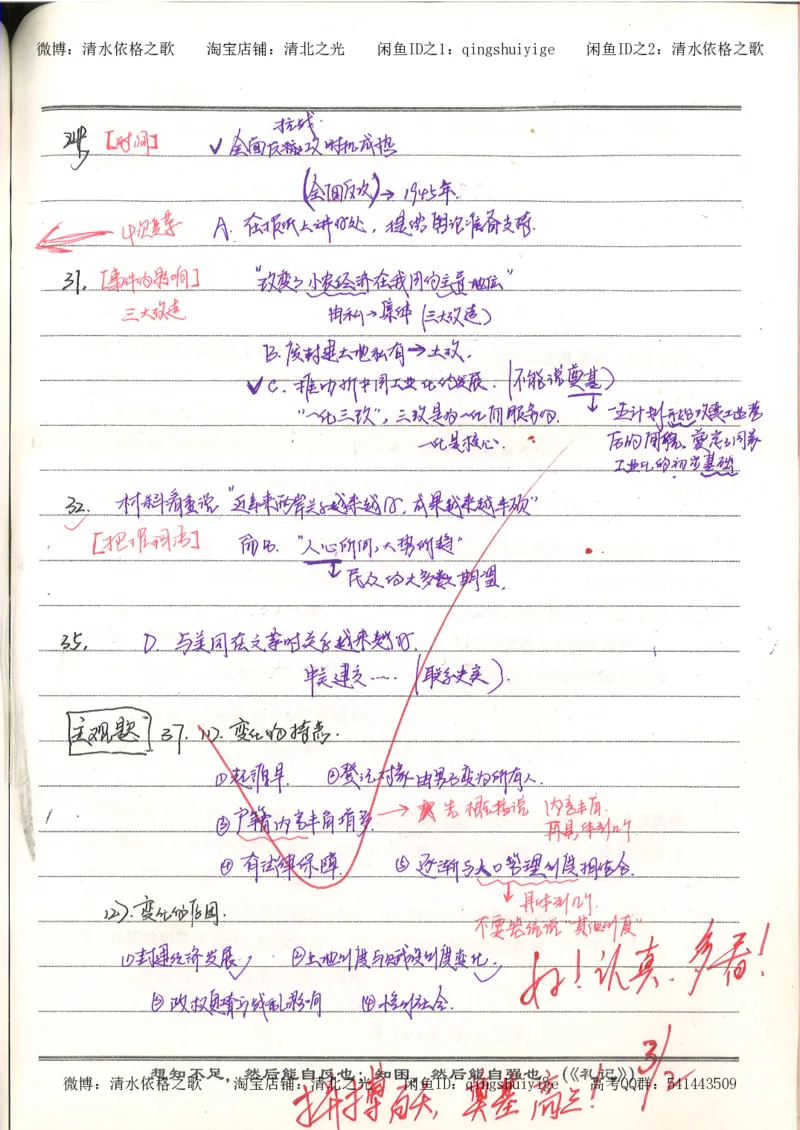 微博：清水依格之歌 淘宝店铺：清北之光 闲鱼ID之1：qingshuiyige 闲鱼ID之2：清水依格之歌
抗战
24 [时间] ✓全面反攻时机成熟
(全面反攻)→1945年.
A. 在报纸上讲好处，提供舆论准备支持.
31. [事件的影响] "改变了小农经济在我国的主导地位"
三大改造 由私→集体 (三大改造)
B. 废封建土地私有→土改.
✓C. 推动新中国工业化的发展. (不能说奠基)
"一化三改"，三改是为一化而服务的. 一五计划
一化是核心. 后的 奠定了国家
工业化的初步基础
32. 材料着重说"近年来两岸关系越来越好，成果越来越丰硕"
[把准词语] 而B. "人心所向，大势所趋"
↓民众的大多数期望.
35. D. 与美国在文革时关系越来越好.
中美建交…. (联系史实).
主观题 37. (1). 变化的特点.
①起源早. ②登记对象由男子变为所有人.
③户籍内容丰富详多 → 先概括说 内容丰富.
再具体列几个
④有法律保障. ⑤逐渐与人口管理制度相结合.
↓具体列几个.
(2). 变化的原因. 不要笼统说"其他制度"
①封建经济发展✓ ②土地制度与赋役制度变化.✓
③政权更替与战乱影响 ④稳定社会.
好！认真.多看！
3/3
想知不足，然后能自反也；知困，然后能自强也。(《礼记》)
微博：清水依格之歌 淘宝店铺：清北之光 闲鱼ID：qingshuiyige 高考QQ群：541443509
拼搏百天，奠基高三！